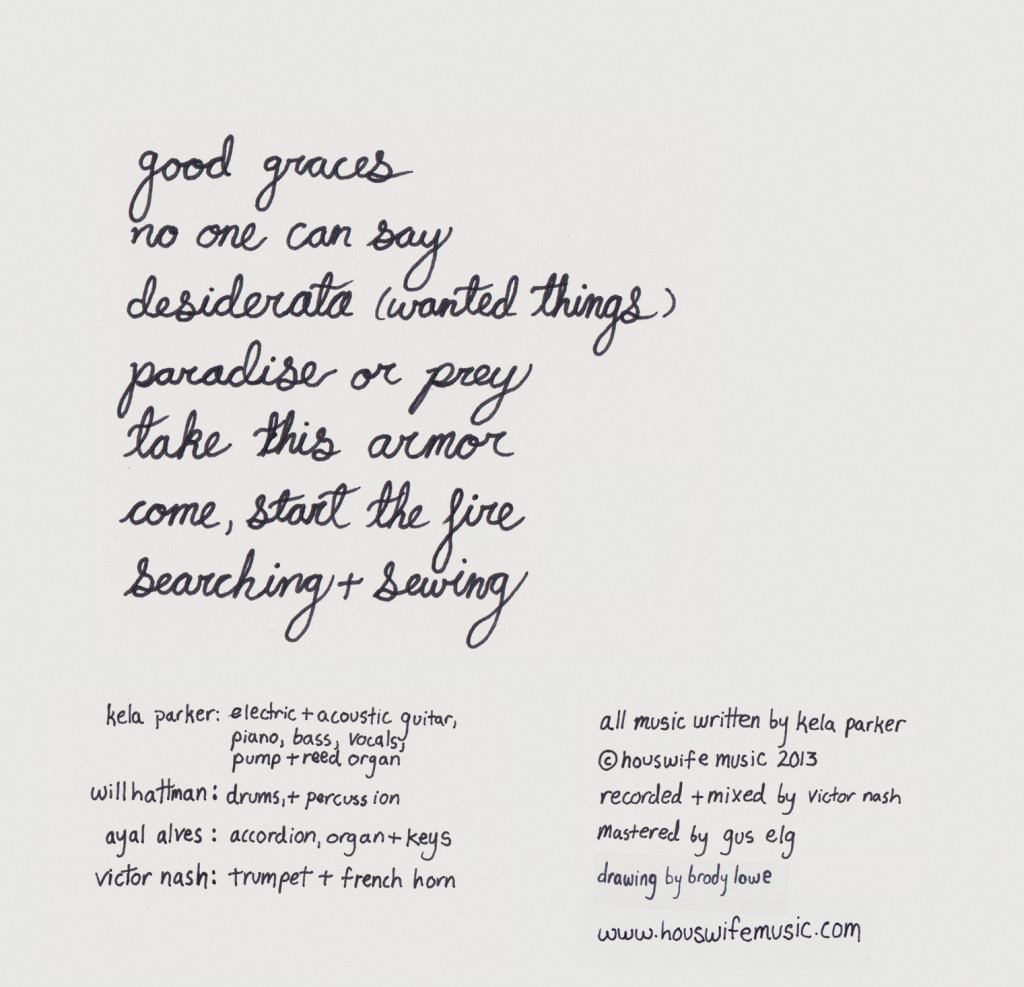 good graces
no one can say
desiderata (wanted things)
paradise or prey
take this armor
come, start the fire
searching + sewing
kela parker: electric + acoustic guitar,
piano, bass, vocals,
pump + reed organ
will hattman: drums, + percussion
ayal alves: accordion, organ + keys
victor nash: trumpet + french horn
all music written by kela parker
© houswife music 2013
recorded + mixed by victor nash
mastered by gus elg
drawing by brody lowe
www.houswifemusic.com